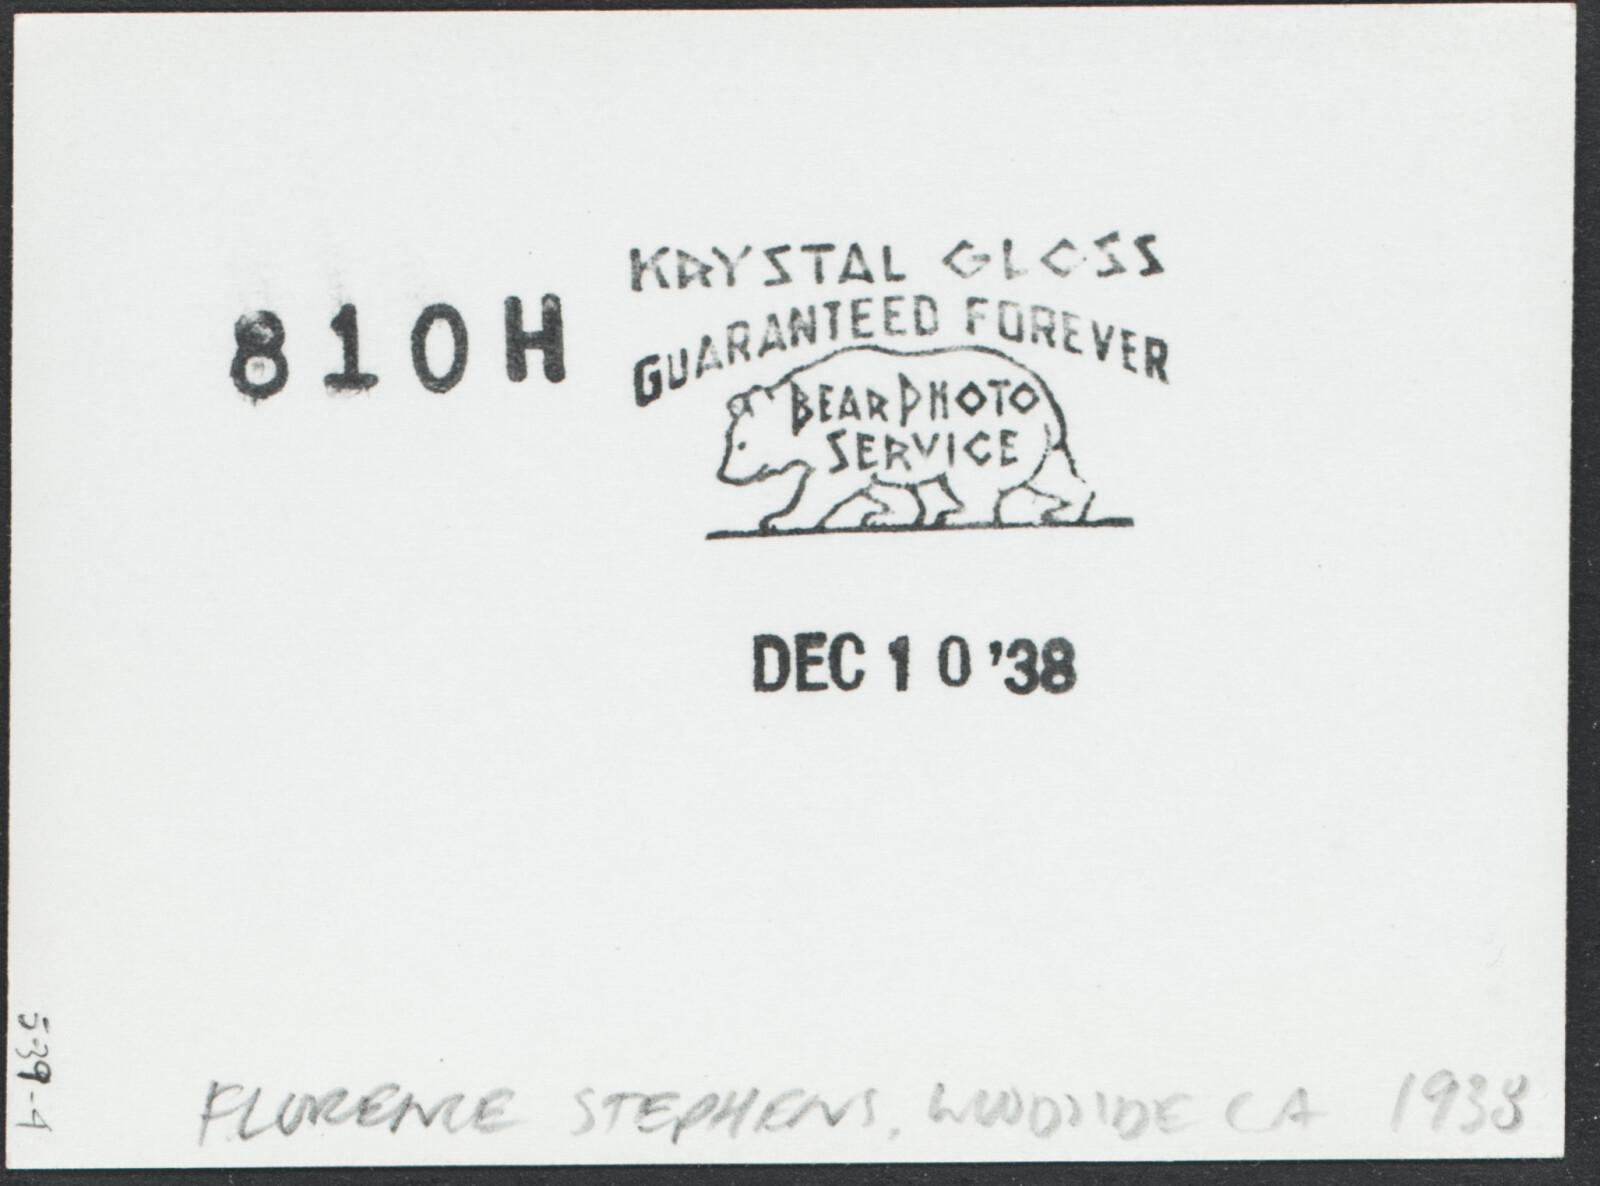 KRYSTAL GLOSS
GUARANTEED FOREVER
810H
BEAR PHOTO
SERVICE
DEC 10 '38
5-39-4
FLORENCE STEPHENS, WOODSIDE CA 1938